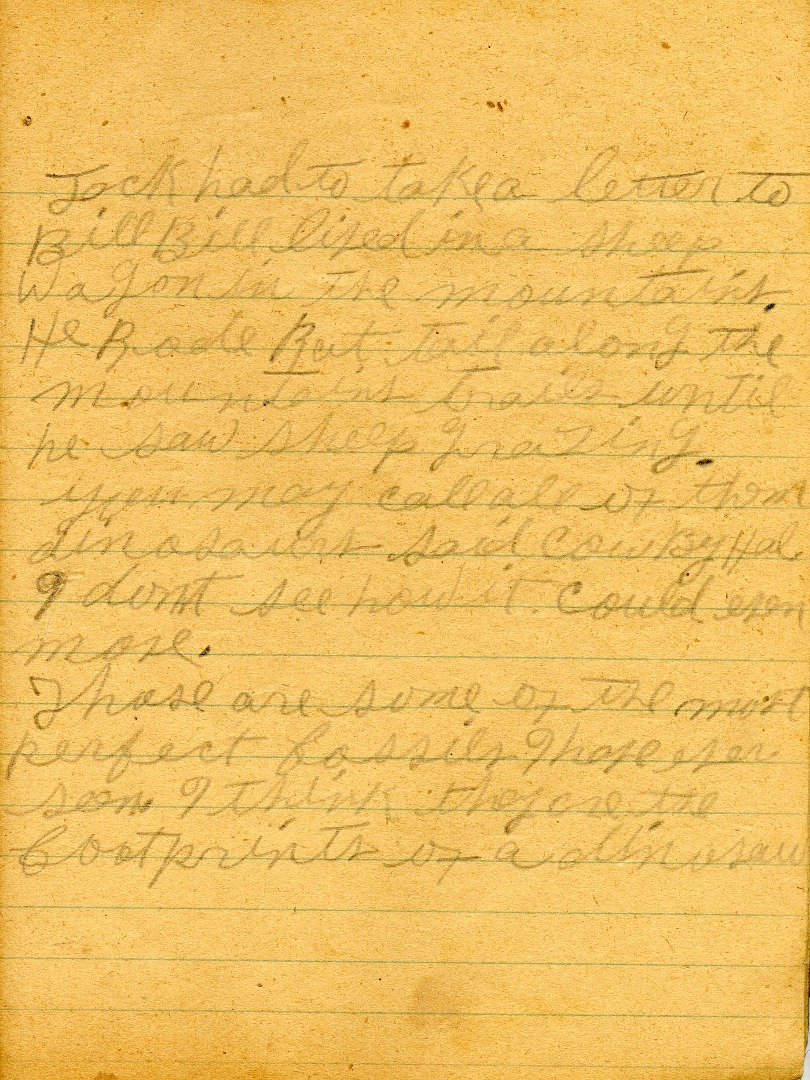 Jack had to take a letter to
Bill Bill lived in a sheep
Wagon in the mountains.
He Rode Rat tail along the
mountains trails until
he saw sheep grazing.
you may call all of them
dinosaurs said CowByHal
I don't see how it could even
move.
Those are some of the most
perfect fossils I have ever
seen I think they are the
footprints of a dinosaur